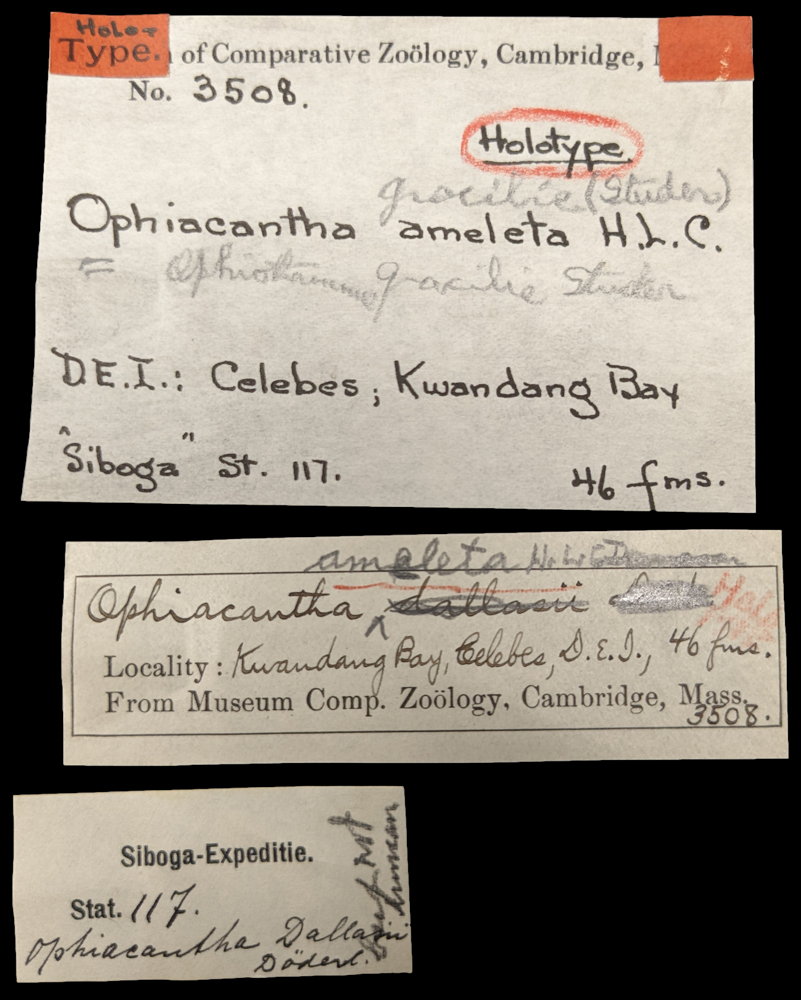 Holo-
Type. of Comparative Zoölogy, Cambridge,
No. 3508.
Holotype
gracilis (Studer)
Ophiacantha ameleta H.L.C.
= Ophiothamnus gracilis Studer
D.E.I.: Celebes; Kwandang Bay
"Siboga" St. 117. 46 fms.
ameleta H.L.C.
Ophiacantha dallasii
Locality: Kwandang Bay, Celebes, D.E.I., 46 fms.
From Museum Comp. Zoölogy, Cambridge, Mass.
3508.
Siboga-Expeditie.
Stat. 117.
Ophiacantha Dallasii
Döderl.
but not